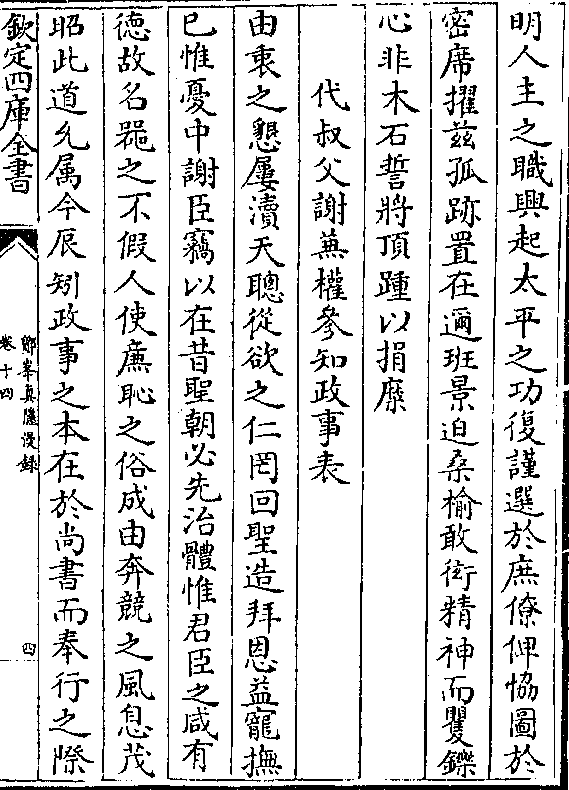 明人主之職興起太平之功復謹選於庶僚俾恊圖於
密席擢兹孤跡置在邇班景迫桑榆敢衒精神而矍鑠
心非木石誓將頂踵以捐糜
代叔父謝兼權參知政事表
由衷之懇屢瀆天聰從欲之仁罔回聖造拜恩益寵撫
已惟憂中謝臣竊以在昔聖朝必先治體惟君臣之咸有
徳故名噐之不假人使廉恥之俗成由奔競之風息茂
昭此道允属今辰矧政事之本在於尚書而奉行之際
欽定四庫全書
鄮峯真隱漫録
卷十四
四